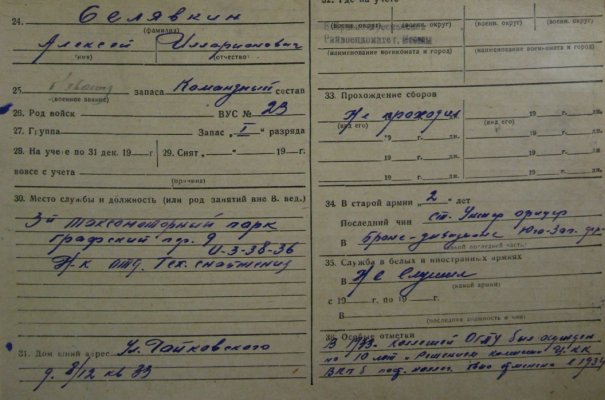 24. Селявкин
(фамилия)
Алексей Илларионович
(имя) (отчество)
25. запаса Командный состав
(военное звание)
26. Род войск ВУС № 23
27. Группа Запас „I“ разряда
28. На учете по 31 дек. 19—г. 29. Снят „—“ 19—г.
вовсе с учета
(причина)
30. Место службы и должность (или род занятий вне В. вед.)
3й таксомоторный парк
Графский пер. 9
И-3-38-36
Н-к отд. Тех. снабжения
31. Домашний адрес Ул. Чайковского
д. 8/12 кв 33
32. Где на учете
(военн. округ) (военн. округ)
Райвоенкомат г. Москвы
(наименование военкомата и город) (наименование военкомата и город)
33. Прохождение сборов
Не проходил
(вид его) (вид его)
19 г. дн. 19 г. дн.
19 г. дн. 19 г. дн.
19 г. дн. 19 г. дн.
34. В старой армии „2“ лет
Последний чин ст. Унтер офицер
В Броне-дивизионе Юго-Зап. фр.
(какой последней части)
35. Служба в белых и иностранных армиях
В Не служил
(какой армии)
с 19—г. по 19—г.
В
(последняя должность и чин)
36 Особые отметки
В коллегией ОГПУ был осужден
на 10 лет. Решением комиссии Ц.КК
ВКП б отменена в 1934